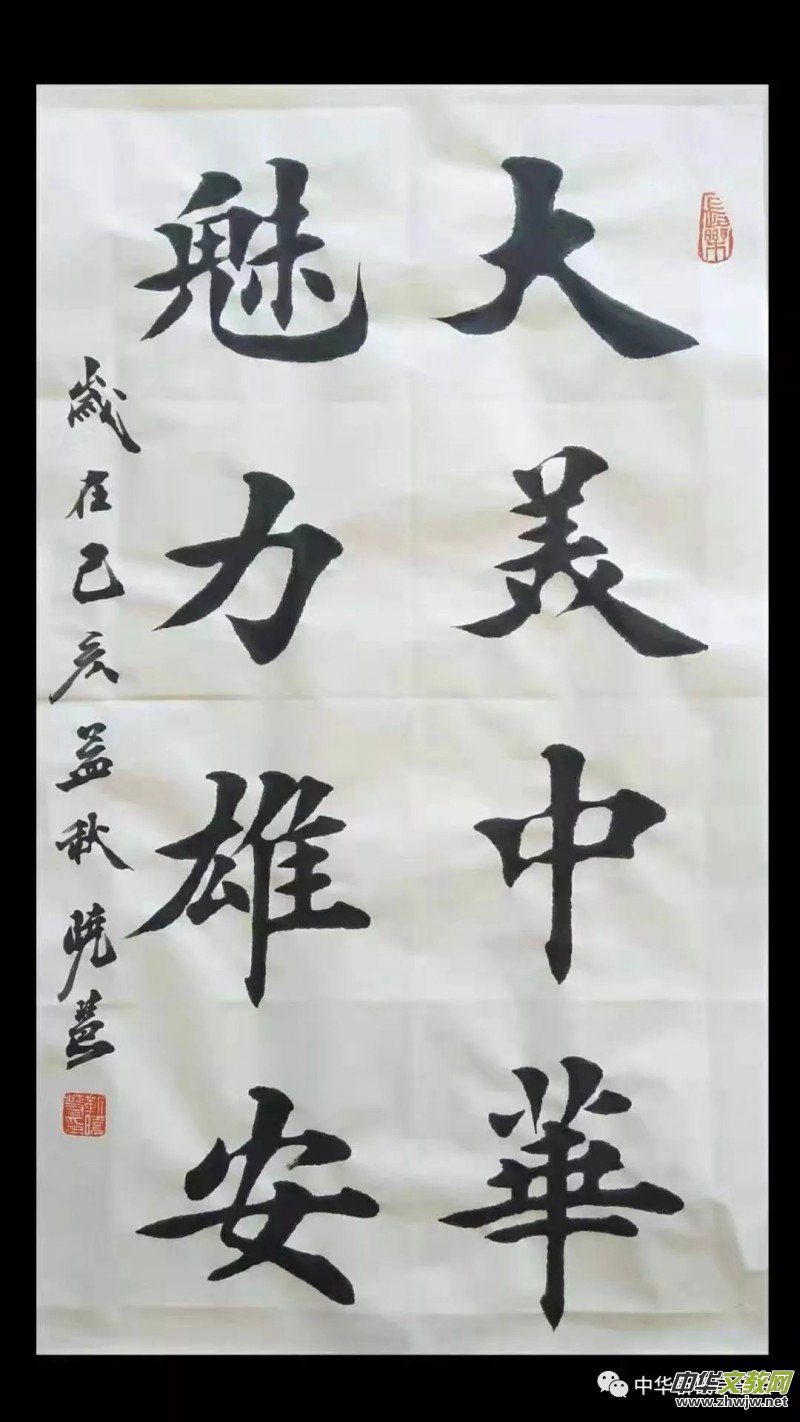 大美中華
魅力雄安
歲在己亥益秋曉慧
長樂
中华
中华文教网
www.zhwjw.net